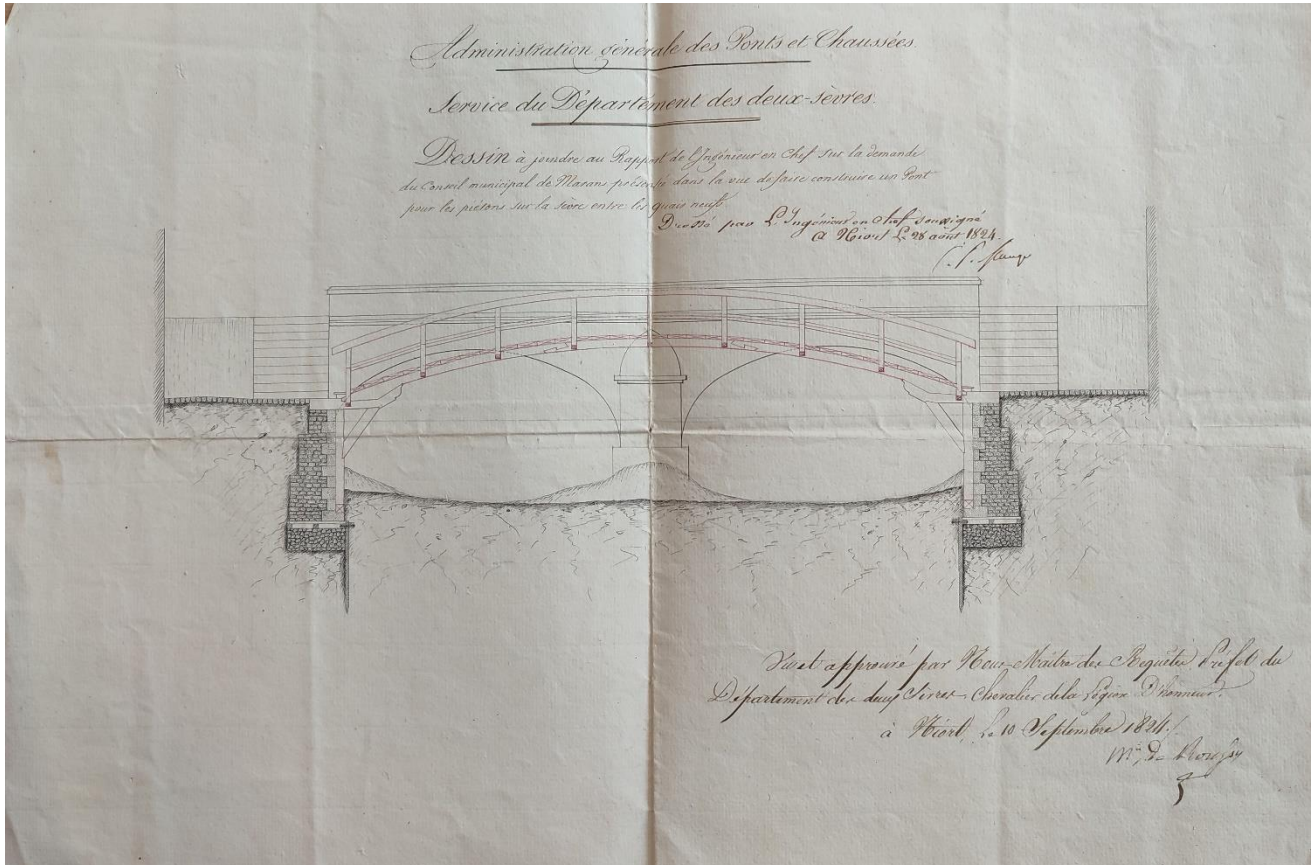 Administration générale des Ponts et Chaussées.
Service du Département des deux-sèvres.
Dessin à joindre au Rapport de l'Ingénieur en Chef sur la demande
du Conseil municipal de Marans présentée dans la vue de faire construire un Pont
pour les piétons sur la sèvre entre les quais neufs.
Dressé par L'Ingénieur en chef soussigné
A Niort Le 28 août 1824.
Vu et approuvé par Nous Maître des Requêtes Préfet du
Département des deux Sèvres Chevalier de la Légion D'honneur.
à Niort, Le 10 Septembre 1824.